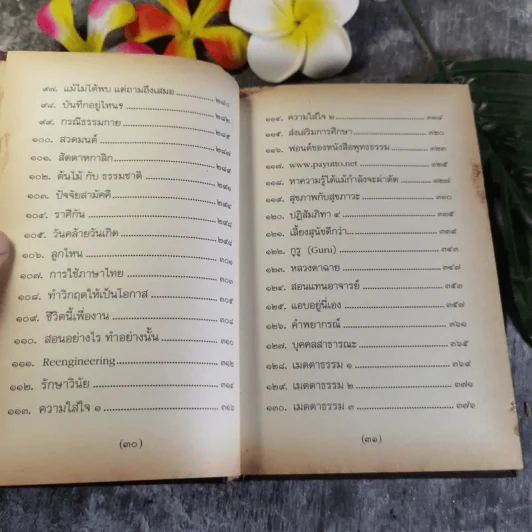 ๙๗. แม้ไม่ได้พบ แต่ถามถึงเสมอ ๒๘๐
๙๘. บันทึกอยู่ไหนฯ ๒๘๒
๙๙. กรณีธรรมกาย ๒๘๕
๑๐๐. สวดมนต์ ๒๘๗
๑๐๑. สัตตาหกาลิก
๑๐๒. ต้นไม้ กับ ธรรมชาติ
๑๐๓. ปัจจัยสามัคคี
๑๐๔. ราศีกัน
๑๐๕. วันคล้ายวันเกิด
๑๐๖. ลูกโหน ๓๐๑
๑๐๗. การใช้ภาษาไทย
๑๐๘. ทำวิกฤตให้เป็นโอกาส ๓๐๕
๑๐๙. ชีวิตนี้เพื่องาน ๓๐๘
๑๑๐. สอนอย่างไร ทำอย่างนั้น ๓๑๐
๑๑๑. Reengineering ๓๑๒
๑๑๒. รักษาวินัย ๓๑๔
๑๑๓. ความใส่ใจ ๑ ๓๑๖
(๓๐)
๑๑๔. ความใส่ใจ ๒ ๓๑๘
๑๑๕. ส่งเสริมการศึกษา ๓๒๐
๑๑๖. ฟอนต์ของหนังสือพุทธธรรม ๓๒๓
๑๑๗. www.payutto.net ๓๒๕
๑๑๘. หาความรู้ได้แม้กำลังจะผ่าตัด ๓๒๗
๑๑๙. สุขภาพกับสุขภาวะ ๓๓๐
๑๒๐. ปฏิสัมภิทา ๔ ๓๓๕
๑๒๑. เลี้ยงสุนัขดีกว่า... ๓๓๙
๑๒๒. กูรู (Guru) ๓๔๓
๑๒๓. หลวงตาฉาย ๓๔๗
๑๒๔. สอนแทนอาจารย์ ๓๕๓
๑๒๕. แอบอยู่นี่เอง ๓๕๗
๑๒๖. คำพยากรณ์ ๓๖๑
๑๒๗. บุคคลสาธารณะ ๓๖๕
๑๒๘. เมตตาธรรม ๑ ๓๖๙
๑๒๙. เมตตาธรรม ๒ ๓๗๑
๑๓๐. เมตตาธรรม ๓ ๓๗๖
(๓๑)